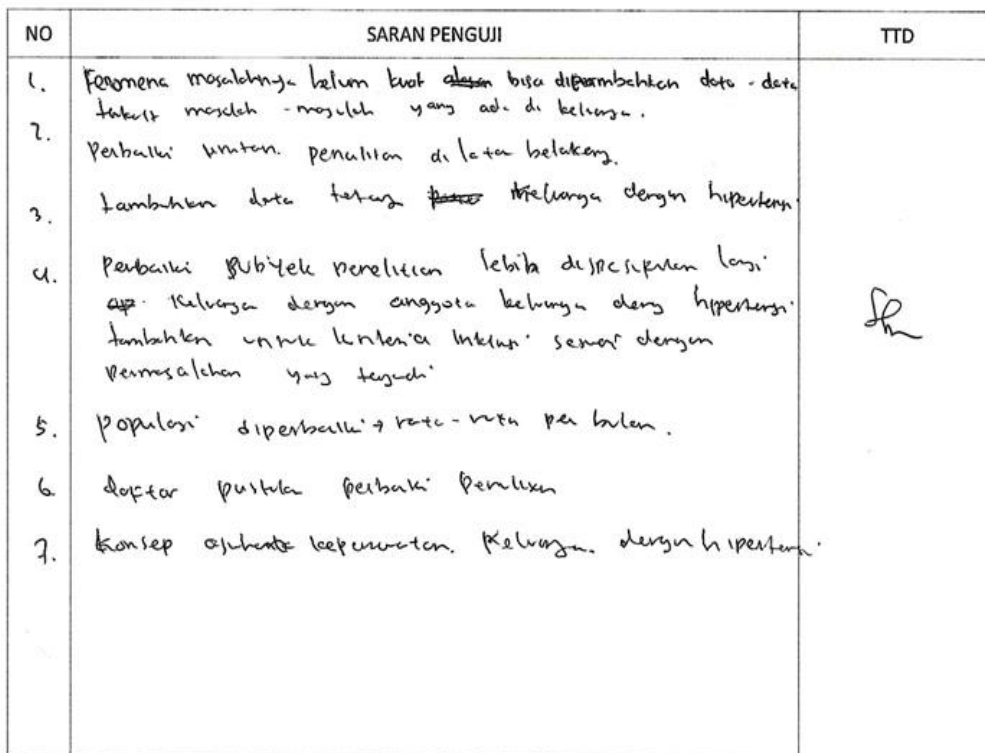 NO SARAN PENGUJI TTD
1. Fenomena masalahnya belum kuat bisa ditambahkan data - data
masalah - masalah yang ada di keluarga.
2. Perbaiki urutan penulisan di latar belakang.
3. tambahkan data tentang keluarga dengan hipertensi
4. Perbaiki subyek penelitian lebih dispesifikan lagi
Keluarga dengan anggota keluarga deng hipertensi
tambahkan untuk kriteria inklusi sesuai dengan
permasalahan yang terjadi
5. populasi diperbaiki → rata-rata per bulan.
6 daftar pustaka perbaiki penulisan
7. Konsep asuhan keperawatan. Keluarga. dengan hipertensi